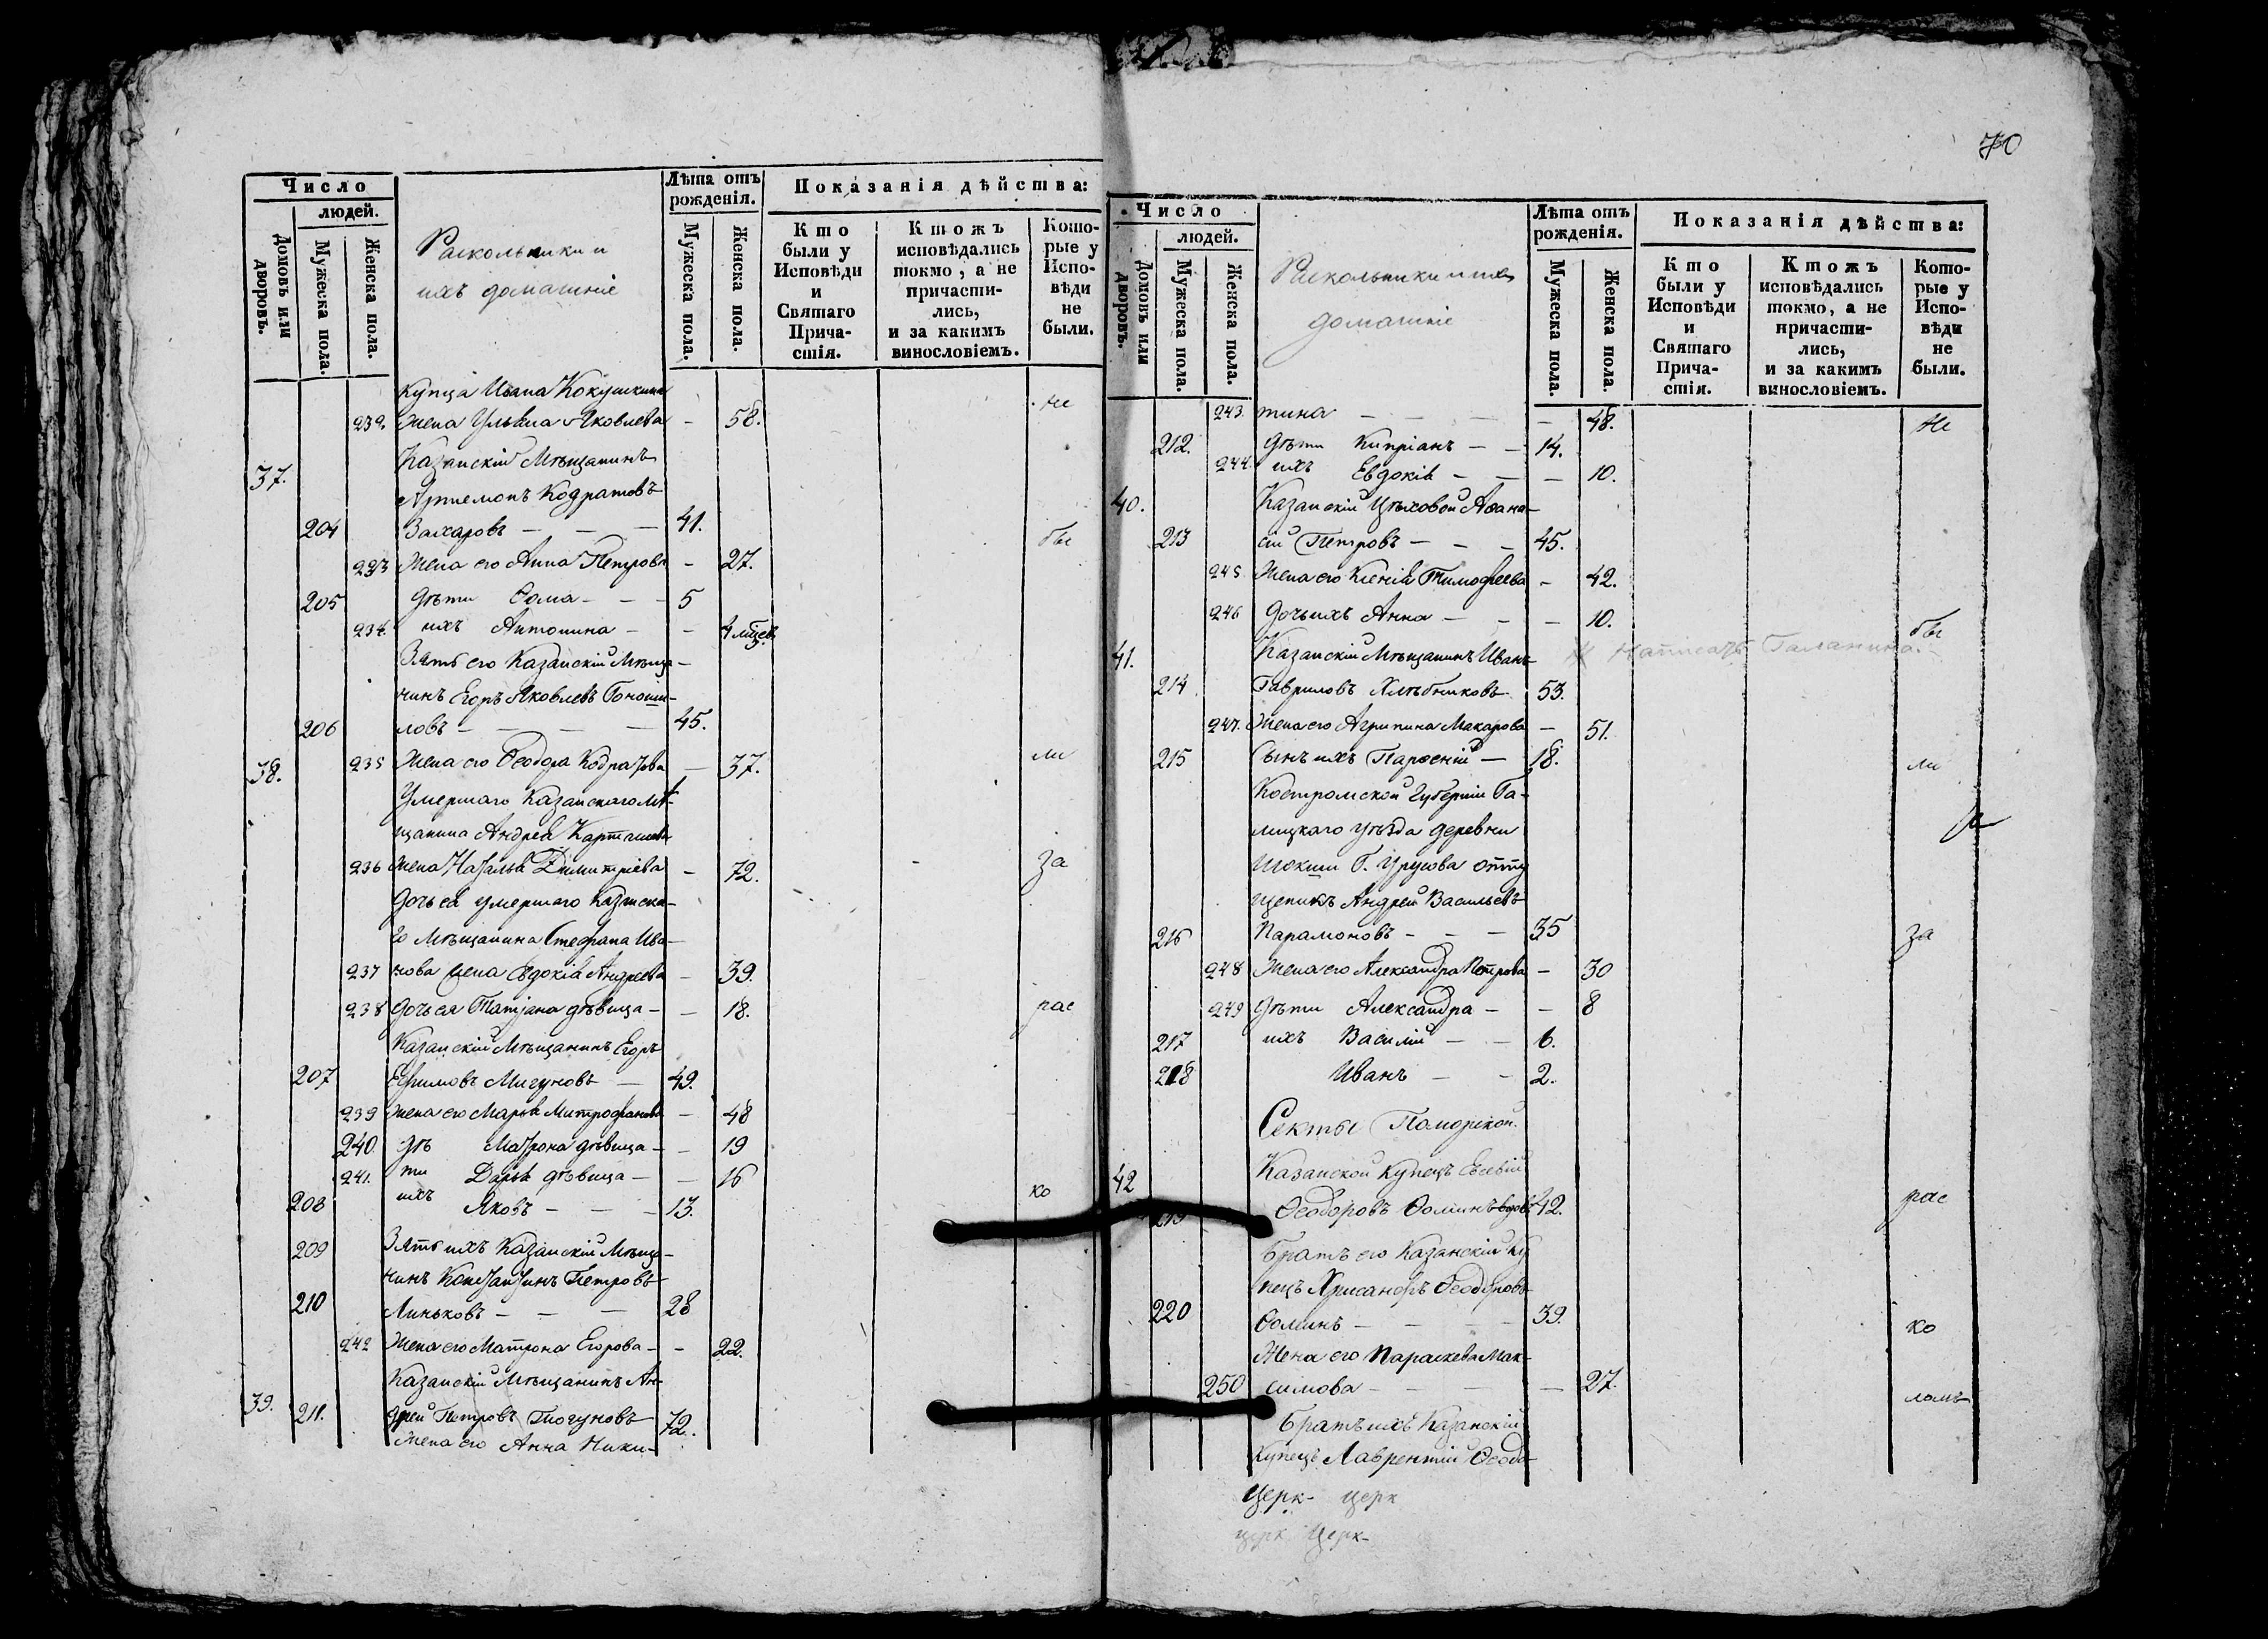 70
Число
людей.
Домовъ или дворовъ.
Мужеска пола.
Женска пола.
Раскольники и
ихъ домашніе
Лѣта отъ рожденія.
Мужеска пола.
Женска пола.
Показанія дѣйства:
Кто были у Исповѣди и Святаго Прича-стія.
Ктожъ исповѣдались токмо, а не причасти-лись, и за какимъ винословіемъ.
Кото-рые у Испо-вѣди не были.
купца Ивана Кокушкина
232. жена Ульяна Яковлева – 58. не
37. Казанскій Мѣщанинъ
Артемонъ Кодратовъ
204 Захаровъ – – – 41.
бы
233 жена его Анна Петрова – 27.
205 дѣти Ѳома – – – 5
234. ихъ Антонина – – 4 мѣсев.
Зять его Казанскій Мѣща-
нинъ Егоръ Яковлевъ
206 ловъ – – – – 45.
38. 235 жена его Ѳеодора Кодратова – 37. ли
Умершаго Казанскаго Мѣ-
щанина Андрея
236 жена Наталья Димитріева – 72. за
дочь ея умершаго Казанска-
го Мѣщанина Стефана Ива-
237 нова жена Евдокія Андреева – 39.
238 дочь ея Татіана дѣвица – – 18. рас
Казанскій Мѣщанинъ Егоръ
207 Ефимовъ Мигуновъ – 49.
239 жена его Марья Митрофанова – 48
240 дѣ Матрона дѣвица – – 19
241. ти Дарья дѣвица – – 16
208 ихъ Яковъ – – – 13. ко
209 Зять ихъ Казанскій Мѣща-
нинъ Константинъ Петровъ
210 Линьковъ – – – 28
242 жена его Матрона Егорова – – 22.
Казанскій Мѣщанинъ Ан-
39. 211. дрей Петровъ 72.
жена его Анна Ники-
Число
людей.
Домовъ или дворовъ.
Мужеска пола.
Женска пола.
Раскольники и ихъ
домашніе
Лѣта отъ рожденія.
Мужеска пола.
Женска пола.
Показанія дѣйства:
Кто были у Исповѣди и Святаго Прича-стія.
Ктожъ исповѣдались токмо, а не причасти-лись, и за какимъ винословіемъ.
Кото-рые у Испо-вѣди не были.
243. тина – – – – 48. не
212. дѣти Кипріанъ – – 14.
244. ихъ Евдокія – – – 10.
40. Казанскій Цѣховой Аѳана-
213 сій Петровъ – – – 45.
245 жена его Ксенія Тимофеева – 42.
246 дочь ихъ Анна – – – 10.
бы
41. Казанскій Мѣщанинъ Иванъ
214 Гавриловъ Хлѣбниковъ 53.
247. жена его Агрипина Макарова – 51.
215 сынъ ихъ Парѳеній – 18. ли
Костромской Губерніи Га-
лицкаго уѣзда деревни
Г. Урусова отпу
щеникъ Андрей Васильевъ
216 Парамоновъ – – – 35 за
248 жена его Александра Петрова – 30
249 дѣти Александра – – 8
217 ихъ Василій – – 6.
218 Иванъ – – 2.
Секты Поморской.
42 Казанской купецъ Евсевій
219 Ѳеодоровъ Ѳоминъ вдовъ 42. рас
Братъ его Казанскій ку
пецъ Хрисанфъ Ѳеодоровъ
220 Ѳоминъ – – – – 39. ко
Жена его Параскева Мак-
250 симова – – – – 27.
ломъ
Братъ ихъ Казанскій
Купецъ Лаврентій Ѳеодо-
Церк- церк
церк Церк-